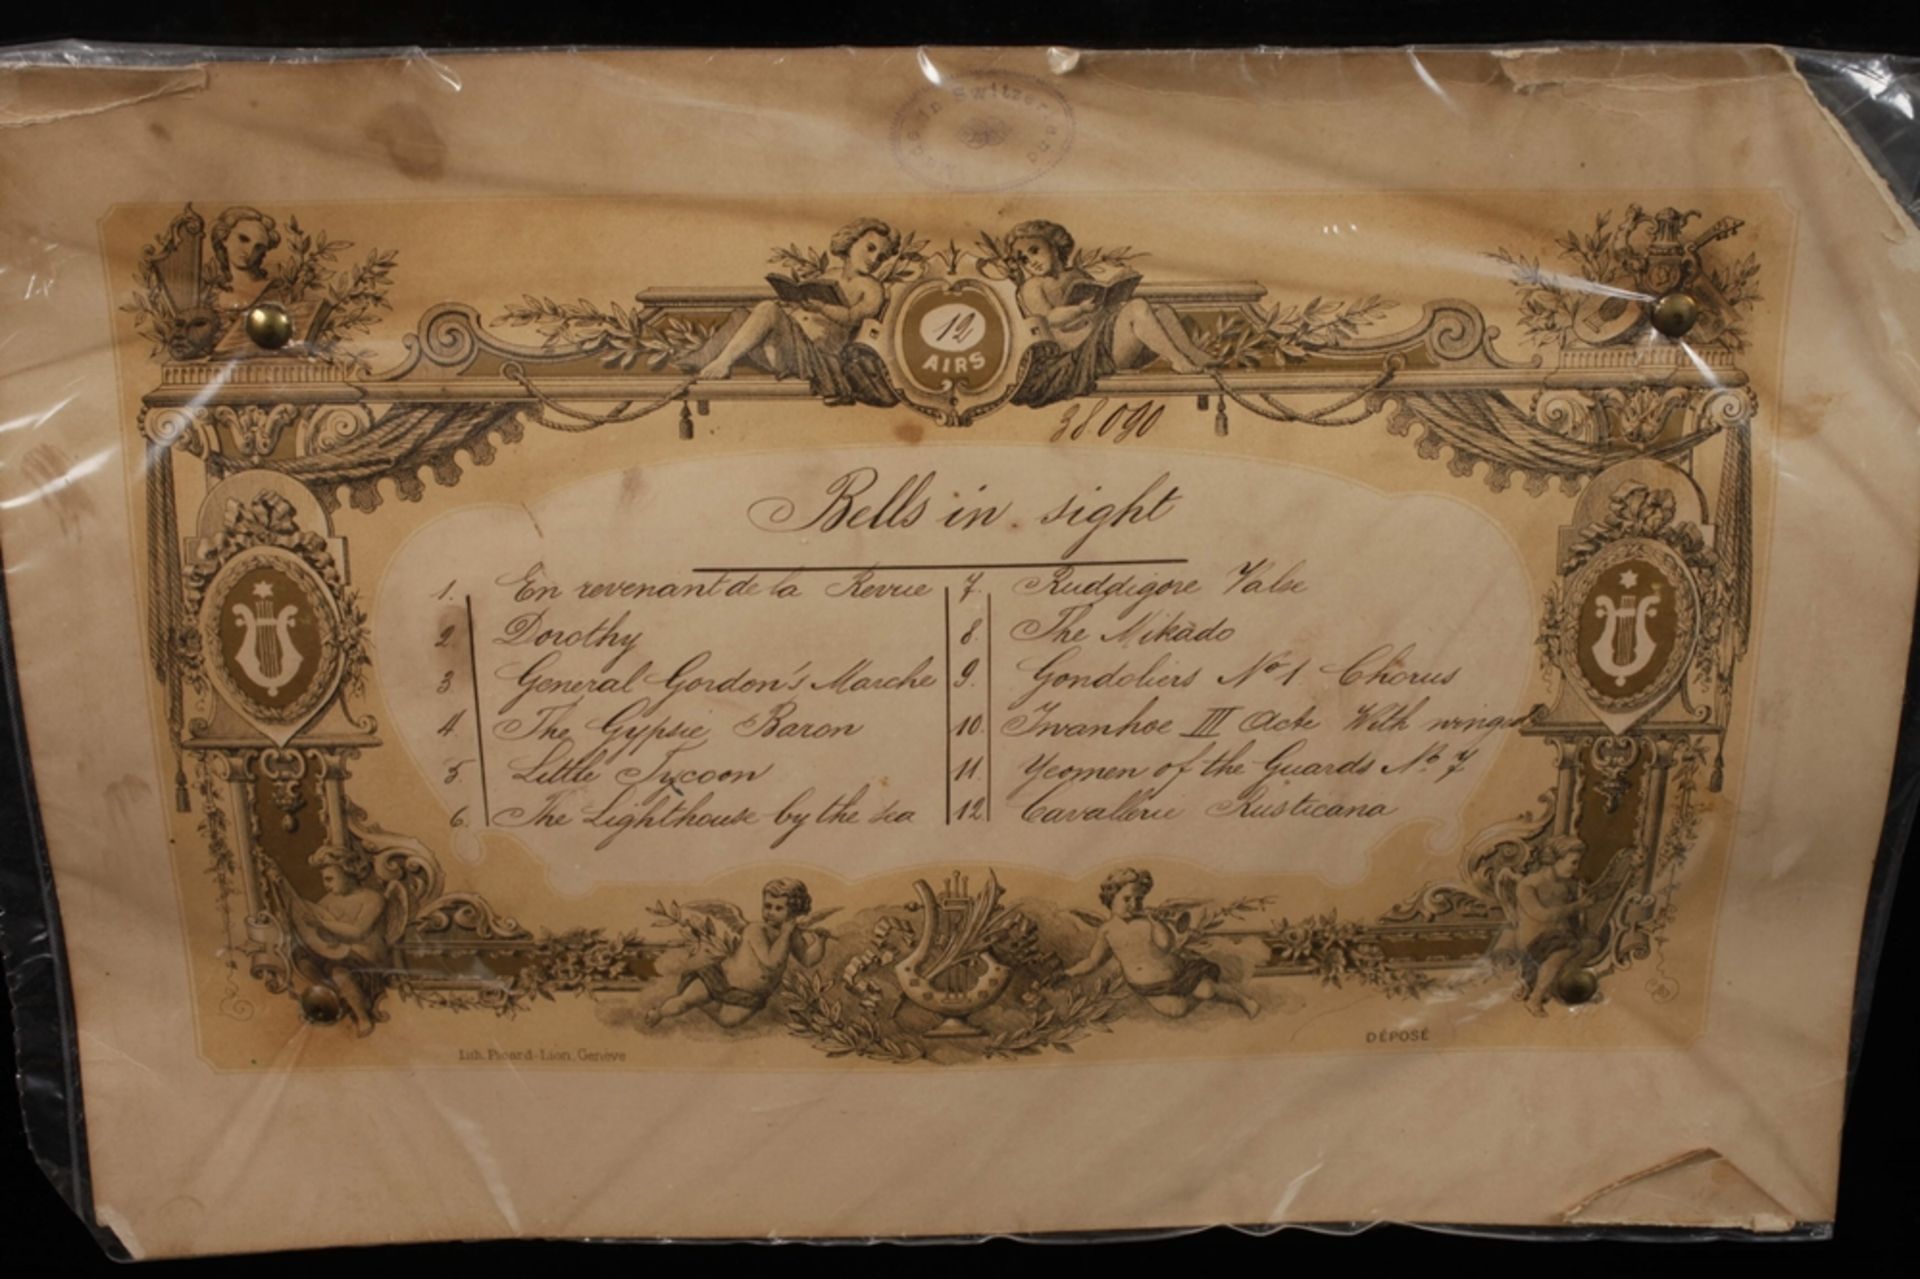 Made in Switzerland
12
AIRS
38090
Bells in sight
1. En revenant de la Revue
2. Dorothy
3. General Gordon's Marche
4. The Gypsie Baron
5. Little Tycoon
6. The Lighthouse by the sea
7. Ruddigore Valse
8. The Mikado
9. Gondoliers No 1 Chorus
10. Ivanhoe III Acte With winged
11. Yeomen of the Guards No. 7
12 Cavallerie Rusticana
Lith. Picard-Lion, Genève
DÉPOSÉ